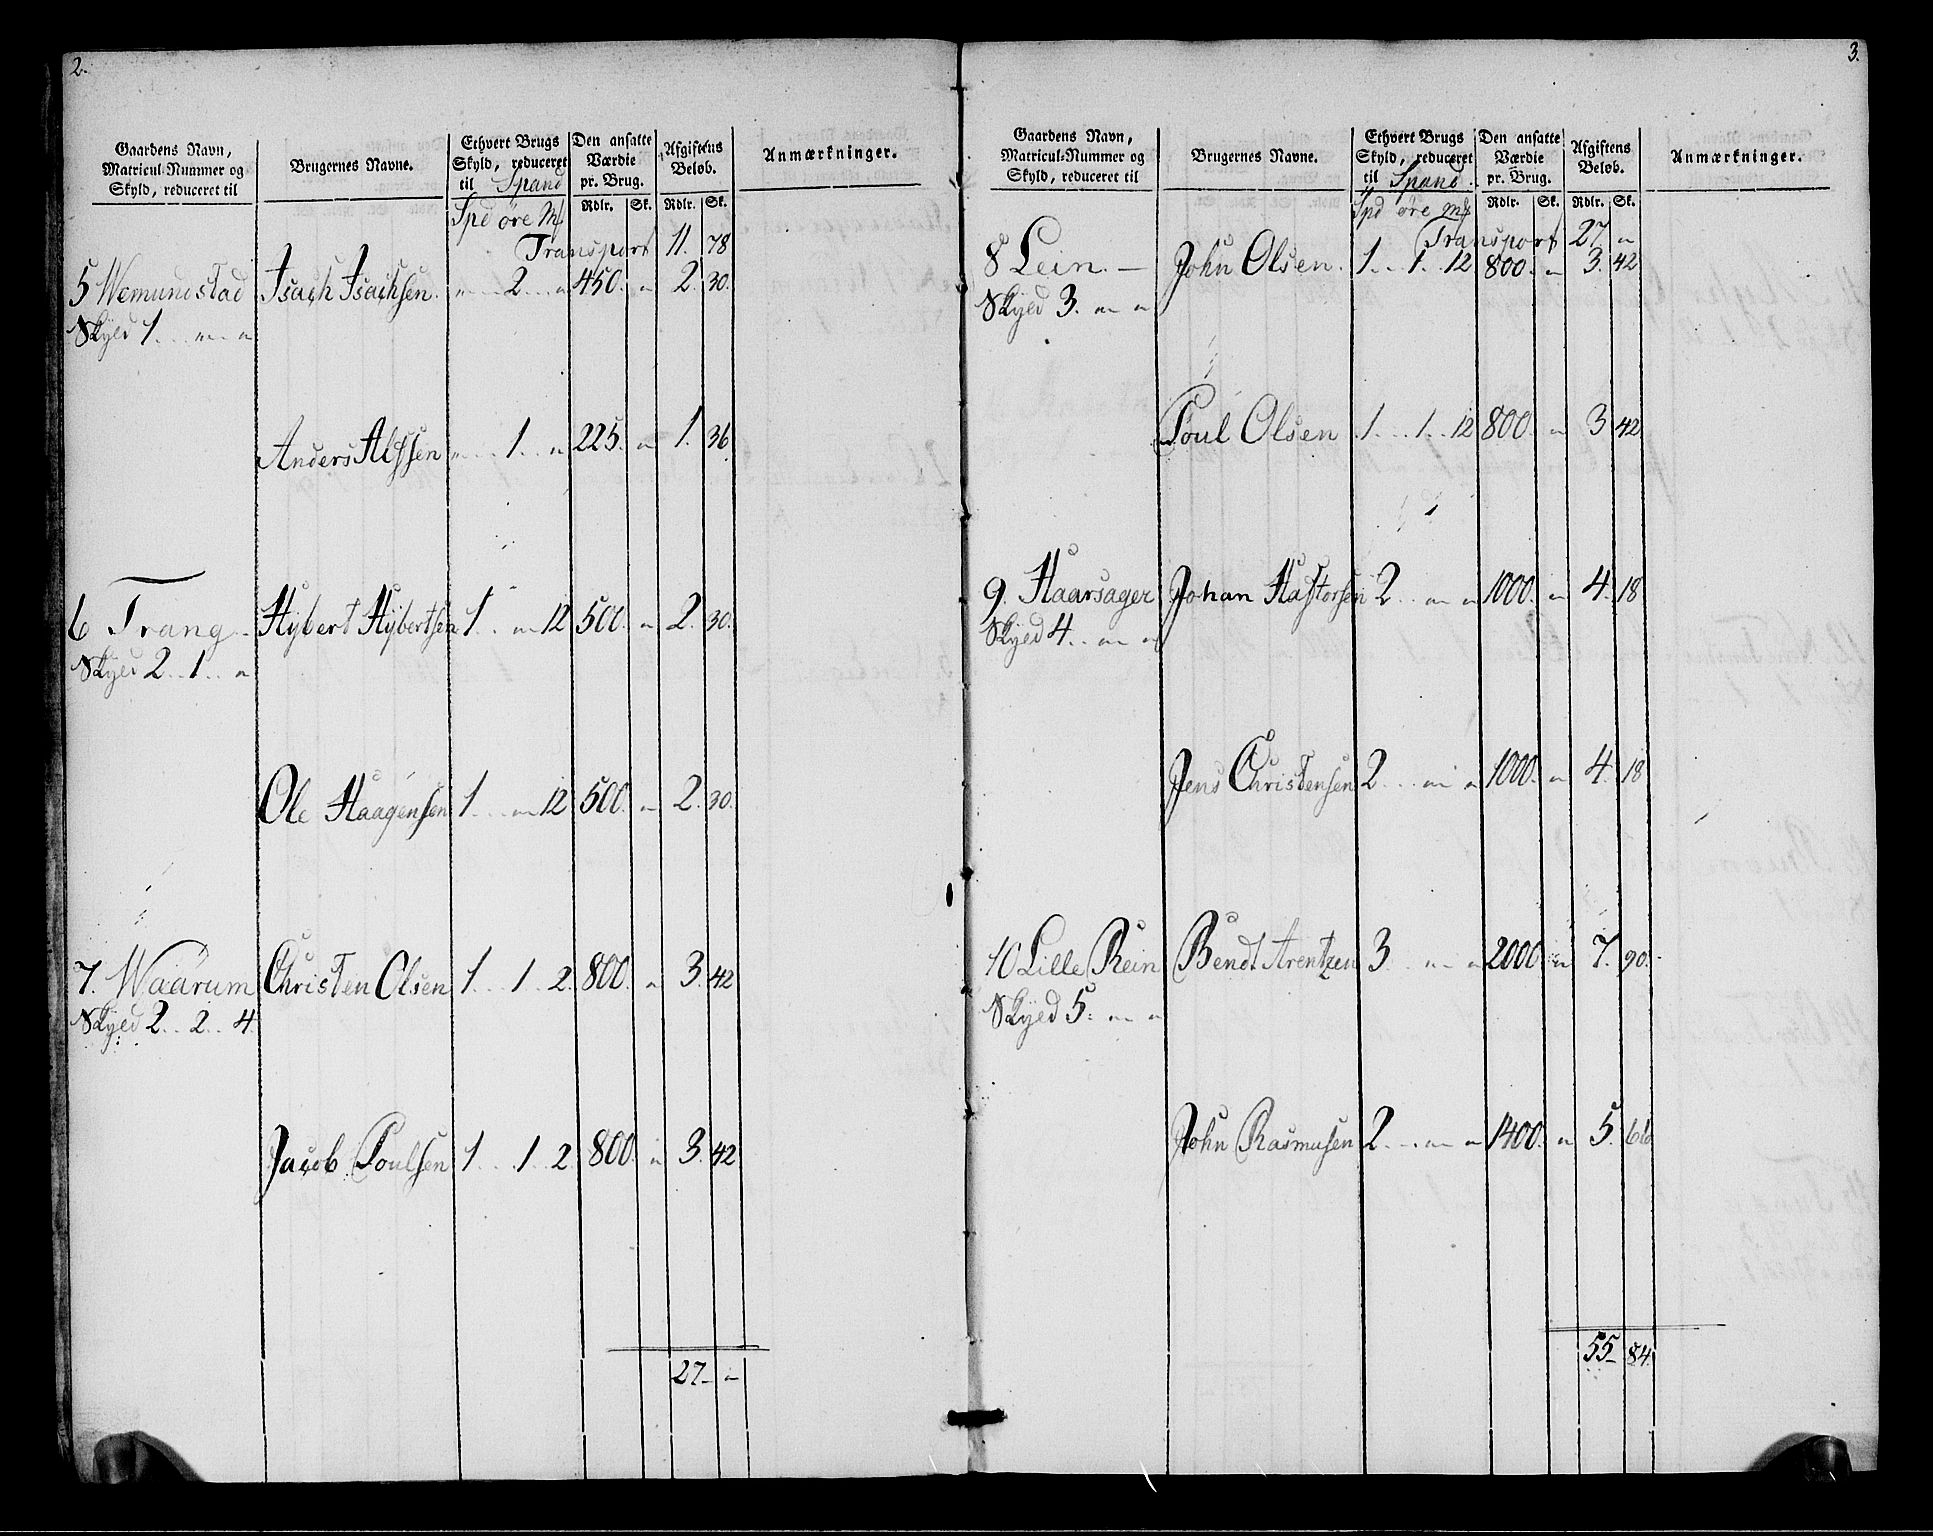 2.
Gaardens Navn, Matricul-Nummer og Skyld, reduceret til | Brugernes Navne. | Ethvert Brugs Skyld, reduceret til Spand | Den ansatte Værdie pr. Brug. | Afgiftens Beløb. | Anmærkninger.
Spd øre Mk | Rdlr. | Sk. | Rdlr. | Sk.
Transport 11. 78
5 Wemundstad Isach Isachsen. " 2 " 450. " 2. 30.
Skyld 1. " "
Anders Alfsen " 1 " 225. " 1. 36.
6 Trang Hybert Hybertsen 1 " 12 500. " 2. 30.
Skyld 2 1 "
Ole Haagensen 1 " 12 500. " 2. 30.
7. Waarum Christen Olsen 1 1 2. 800. " 3. 42
Skyld 2 2 4.
Jacob Poulsen 1 1 2. 800. " 3. 42
27 "
3.
Gaardens Navn, Matricul-Nummer og Skyld, reduceret til | Brugernes Navne. | Ethvert Brugs Skyld, reduceret til Spand | Den ansatte Værdie pr. Brug. | Afgiftens Beløb. | Anmærkninger.
Spd øre Mk | Rdlr. | Sk. | Rdlr. | Sk.
Transport 27 "
8 Lein. John Olsen. 1 1 12 800. " 3. 42
Skyld 3. " "
Poul Olsen 1 1 12 800. " 3 42
9. Haarsager Johan Hastorsen 2 " " 1000. " 4. 18
Skyld 4 " "
Jens Christensen 2 " " 1000. " 4. 18
10 Lille Rein Bendt Arentzen 3 " " 2000 " 7. 90.
Skyld 5. " "
John Rasmusen 2 " " 1400. " 5. 66
55 84.